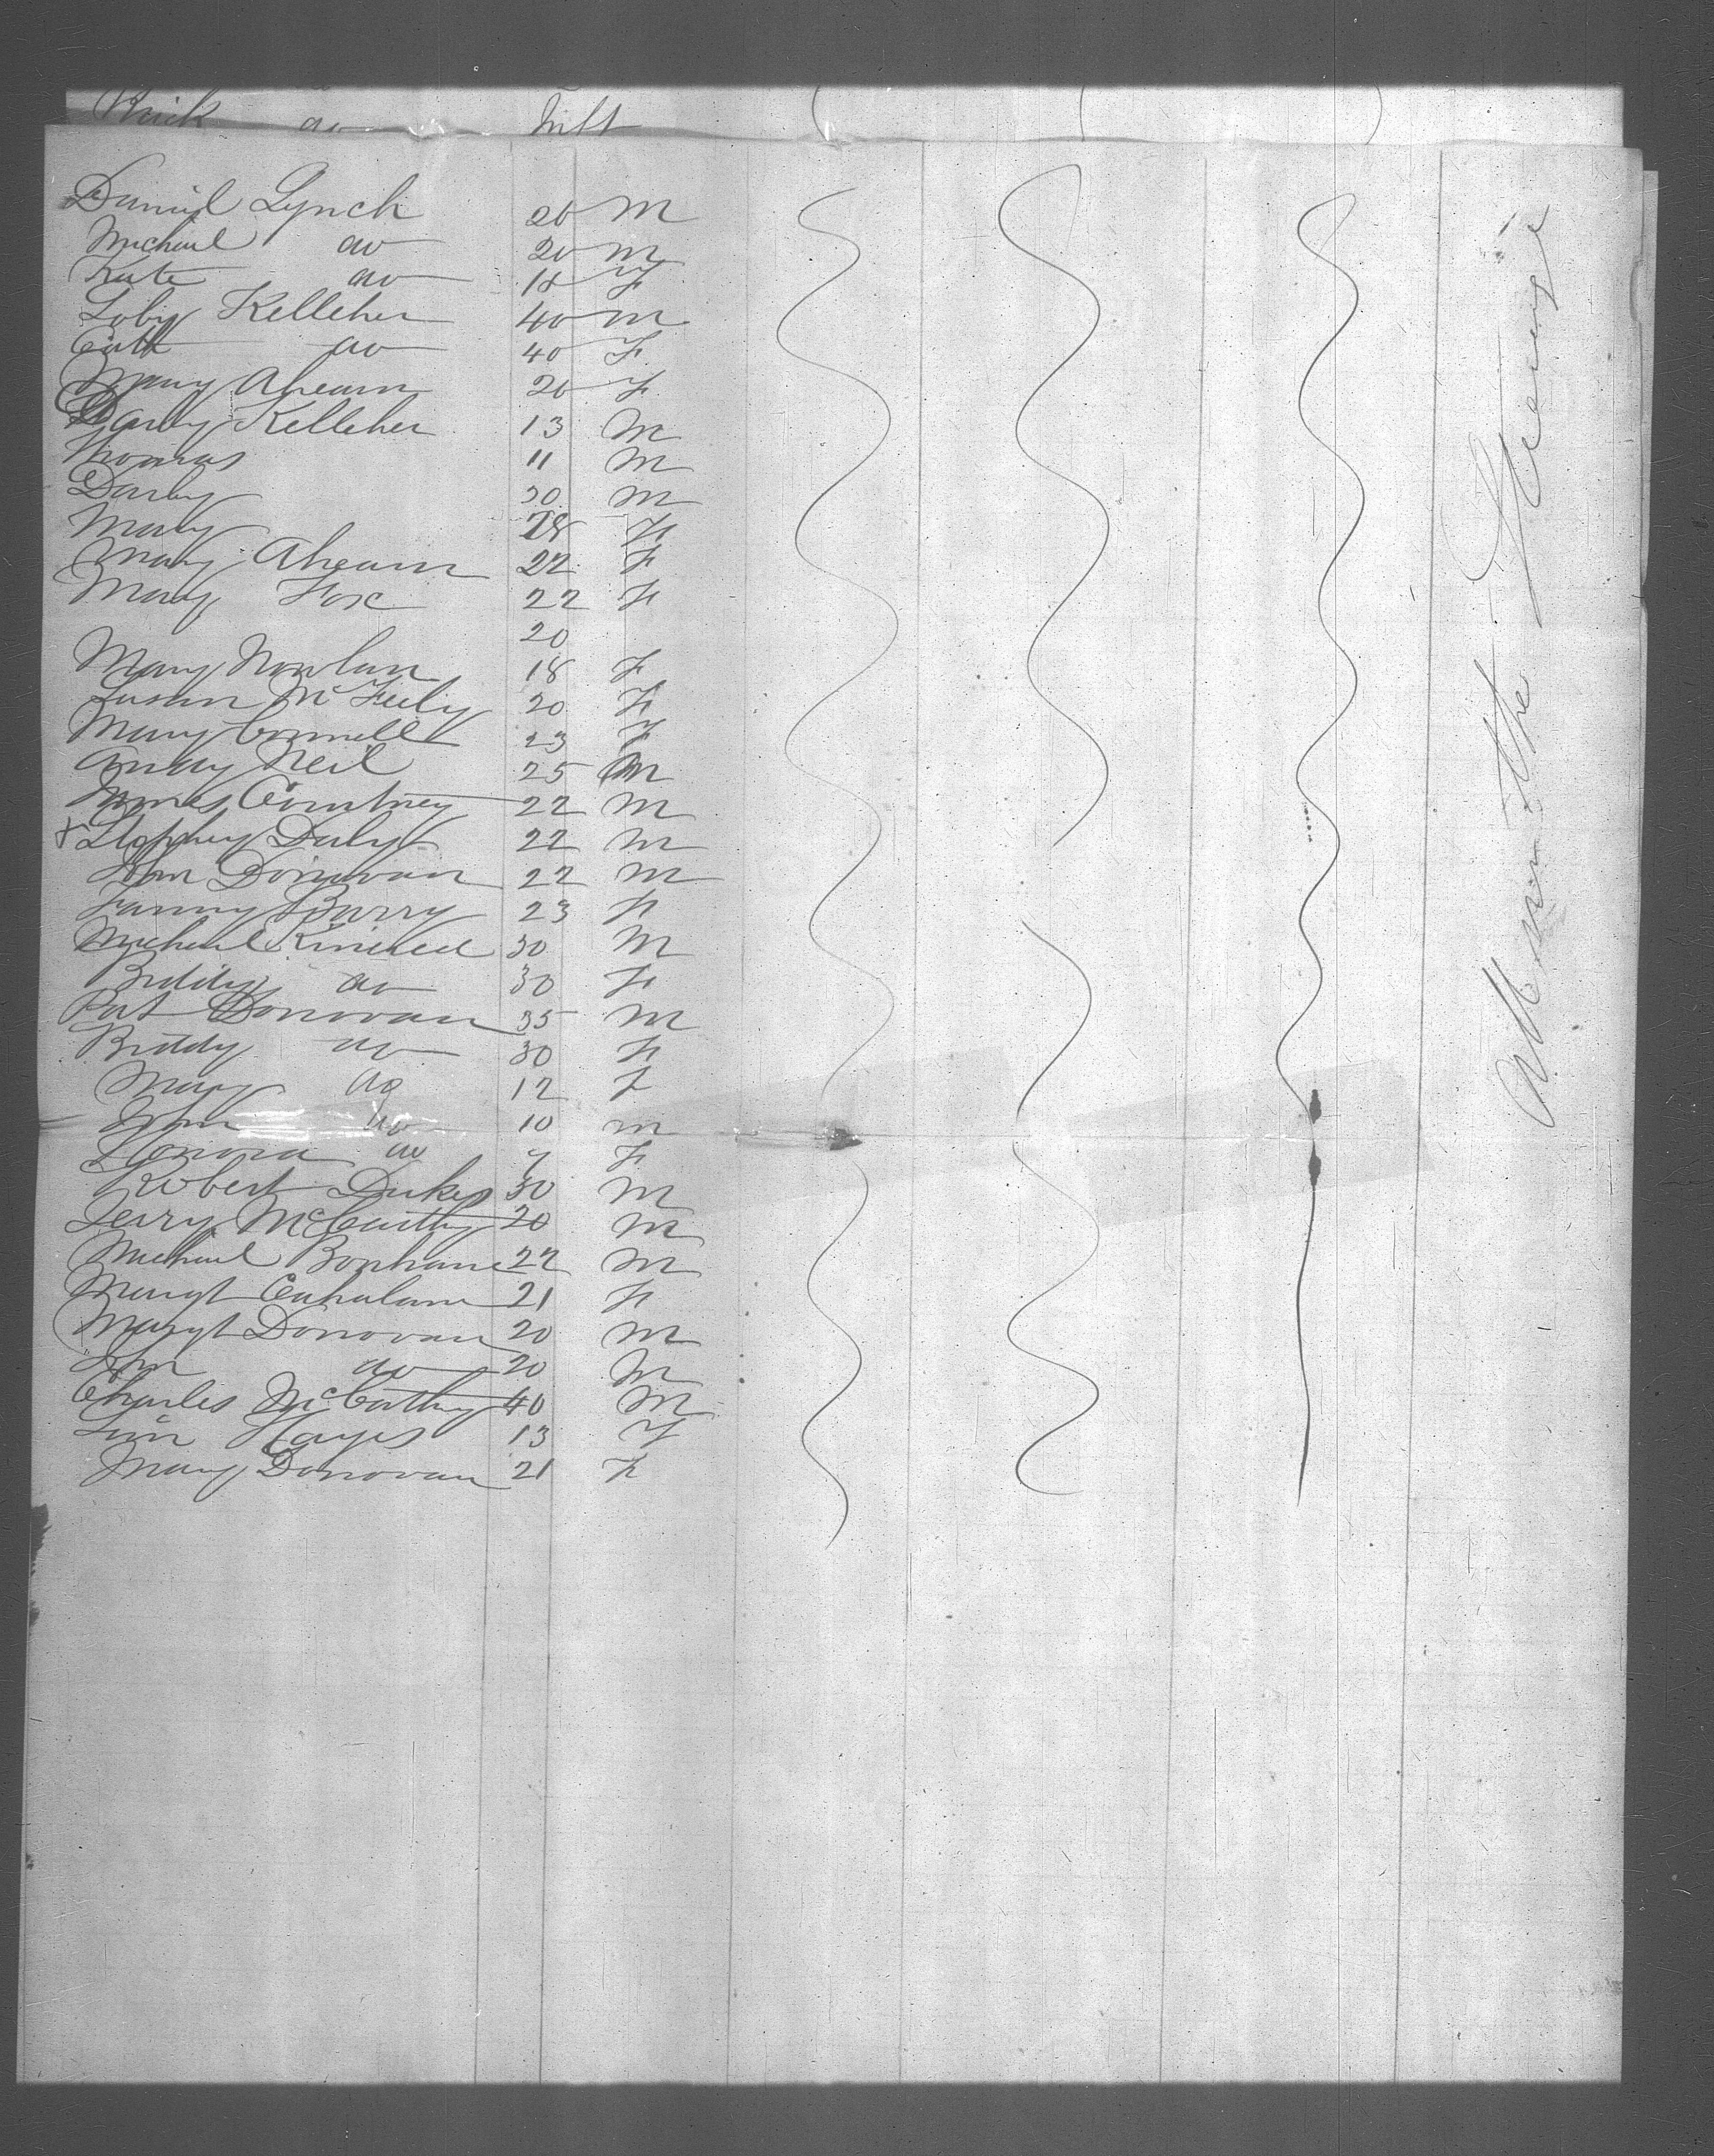 do
Daniel Lynch 20 M
Michael do 20 M
Kate do 18 F
Toby Kelleher 40 M
Cath do 40 F
Mary Ahearn 20 F
Darby Kelleher 13 M
Thomas 11 M
Darby 30 M
Mary 28 F
Mary Ahearn 22 F
Mary Fox 22 F
20
Mary Nowlan 18 F
Susan McFeely 20 F
Mary Connell 23 F
Anday Neil 25 M
James Courtney 22 M
+ Stephney Daly 22 M
John Donovan 22 M
Fanny Barry 23 F
Michael 30 M
Biddy do 30 F
Pat Donovan 35 M
Biddy do 30 F
Mary do 12 F
John do 10 M
Honora do 7 F
Robert Dukes 30 M
Jerry McCarthy 20 M
Michael 22 M
Margt Cahalane 21 F
Margt Donovan 20 M
John do 20 M
Charles McCarthy 40 M
Hayes 13 F
Mary Donovan 21 F
All in the Steerage